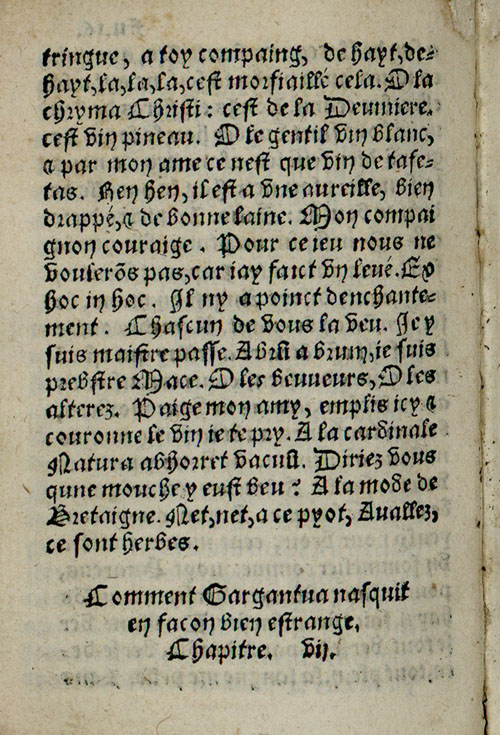 tringue, a toy compaing, de hayt, de-
hayt, la, la, la, cest morfiaillé cela. O la
chryma Christi: cest de la Deuiniere.
cest vin pineau. O le gentil vin blanc,
& par mon ame ce nest que vin de tafe-
tas. Hen hen, il est a vne aureille, bien
drappé, & de bonne laine. Mon compai
gnon couraige. Pour ce ieu nous ne
voulerõs pas, car iay faict vn leué. Ex
hoc in hoc. Il ny a poinct denchante-
ment. Chascun de vous la veu. Ie y
suis maistre passe. A brũ a brum, ie suis
prebstre Mace. O les beuueurs, O les
alterez. Paige mon amy, emplis icy &
couronne le vin ie te pry. A la cardinale
Natura abhorret vacuũ. Diriez vous
qune mouche y eust beu? A la mode de
Bretaigne. Net, net, a ce pyot, Auallez,
ce sont herbes.
Comment Gargantua nasquit
en facon bien estrange.
Chapitre. vij.